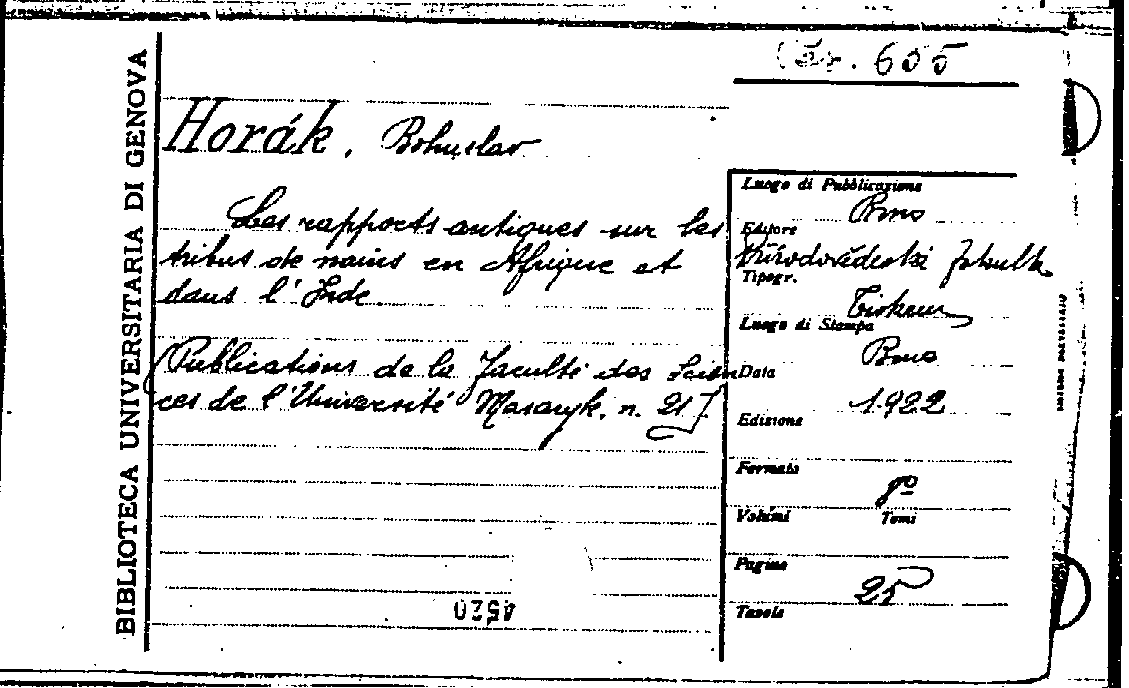 BIBLIOTECA UNIVERSITARIA DI GENOVA
605
Horák, Bohuslav
Les rapports antiques sur les
tribus de nains en Afrique et
dans l'Inde.
(Publications de la Faculté des Scien
ces de l'Université Masaryk. n. 21).
Luogo di Pubblicazione
Brno
Editore
Přírodovědecká
Tipogr.
Luogo di Stampa
Brno
Data
1922
Edizione
Formato
8º
Volumi Tomi
Pagine
25
Tavole